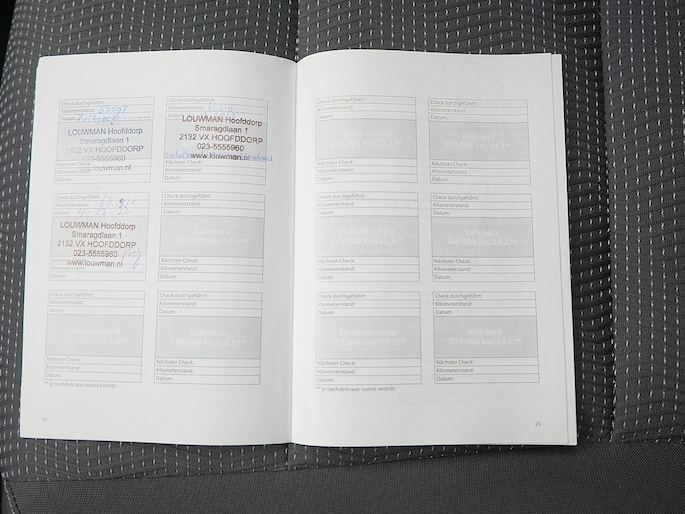 Check durchgeführt:
Kilometerstand:
Datum:
LOUWMAN Hoofddorp
Smaragdlaan 1
2132 VX HOOFDDORP
023-5555960
www.louwman.nl
Nächster Check:
Kilometerstand:
Datum:
Check durchgeführt:
Kilometerstand:
Datum:
LOUWMAN Hoofddorp
Smaragdlaan 1
2132 VX HOOFDDORP
023-5555960
www.louwman.nl
Nächster Check:
Kilometerstand:
Datum:
Check durchgeführt:
Kilometerstand:
Datum:
LOUWMAN Hoofddorp
Smaragdlaan 1
2132 VX HOOFDDORP
023-5555960
www.louwman.nl
Nächster Check:
Kilometerstand:
Datum:
Check durchgeführt:
Kilometerstand:
Datum:
Vollcheck
Nächster Check:
Kilometerstand:
Datum:
Check durchgeführt:
Kilometerstand:
Datum:
Zwischencheck
Nächster Check:
Kilometerstand:
Datum:
Check durchgeführt:
Kilometerstand:
Datum:
Vollcheck
Nächster Check:
Kilometerstand:
Datum:
** je nachdem was zuerst eintritt
24
Check durchgeführt:
Kilometerstand:
Datum:
Zwischencheck
Nächster Check:
Kilometerstand:
Datum:
Check durchgeführt:
Kilometerstand:
Datum:
Vollcheck
210.000 km/14 J.**
Nächster Check:
Kilometerstand:
Datum:
Check durchgeführt:
Kilometerstand:
Datum:
Zwischencheck
Nächster Check:
Kilometerstand:
Datum:
Check durchgeführt:
Kilometerstand:
Datum:
Vollcheck
240.000 km/16 J.**
Nächster Check:
Kilometerstand:
Datum:
Check durchgeführt:
Kilometerstand:
Datum:
Zwischencheck
255.000 km/17 J.**
Nächster Check:
Kilometerstand:
Datum:
Check durchgeführt:
Kilometerstand:
Datum:
Vollcheck
270.000 km/18 J.**
Nächster Check:
Kilometerstand:
Datum:
** je nachdem was zuerst eintritt
25